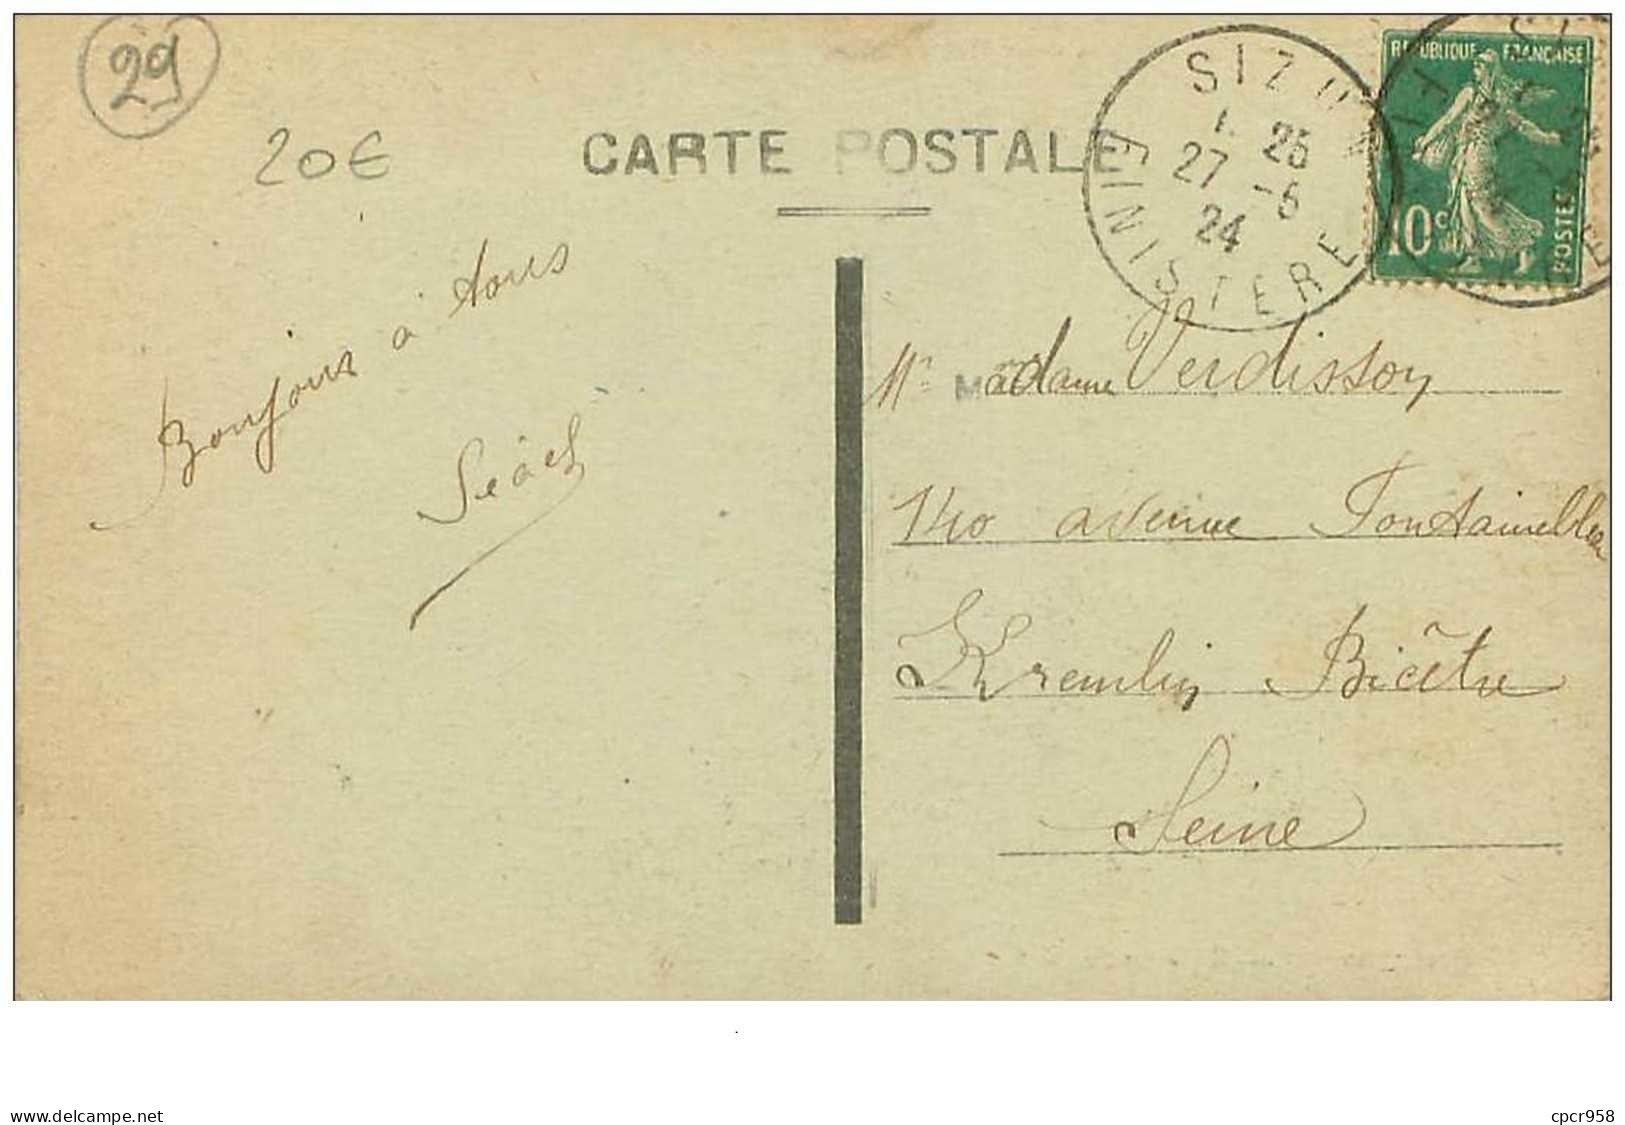 29
20€
CARTE POSTALE
SIZUN
1. 25
27 -5
24
FINISTERE
REPUBLIQUE FRANÇAISE
10c
POSTES
Bonjour à tous
Mr Madame Verdisson
140 avenue Fontainebleau
Kremlin Bicêtre
Seine
www.delcampe.net
cpcr958